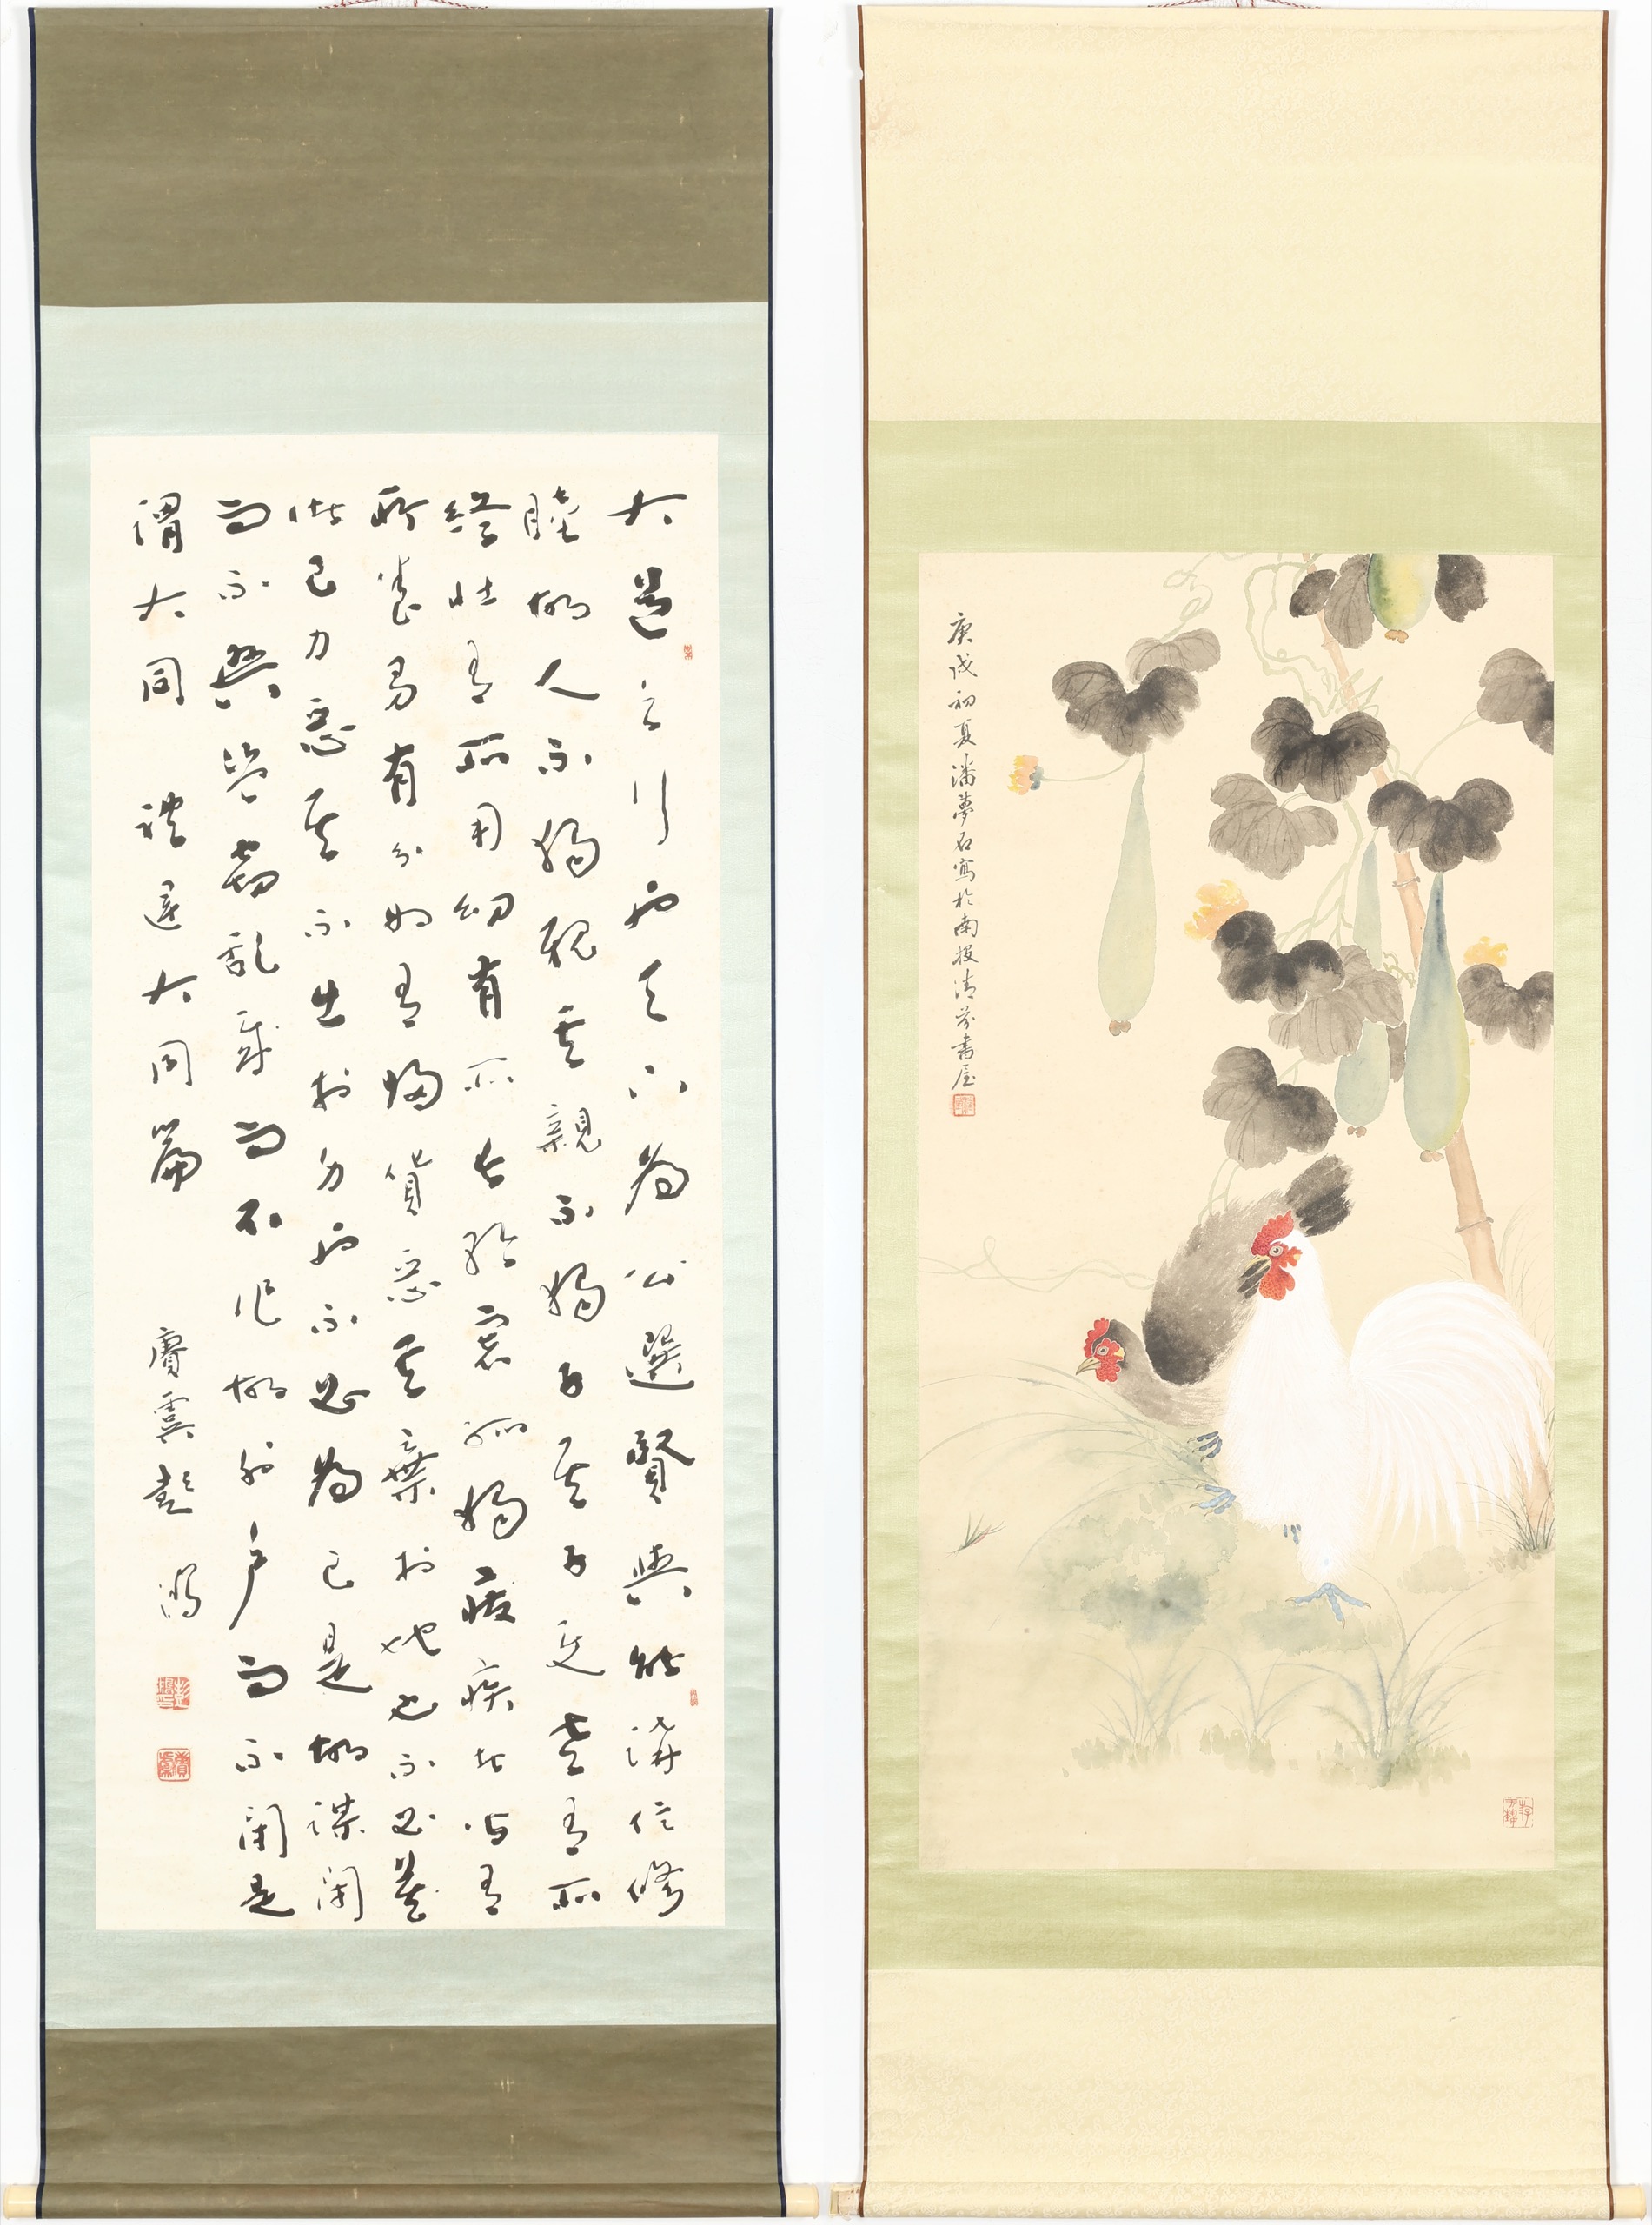 大道之行也天下為公選賢與能講信修
睦故人不獨親其親不獨子其子使老有所
終壯有所用幼有所長矜寡孤獨廢疾者皆有
所養男有分女有歸貨惡其棄於地也不必藏
於己力惡其不出於身也不必為己是故謀閉
而不興盜竊乱賊而不作故外戶而不閉是
謂大同 禮運大同篇 賡虞彭鴻
庚戌初夏潘夢石寫於南投清芬書屋